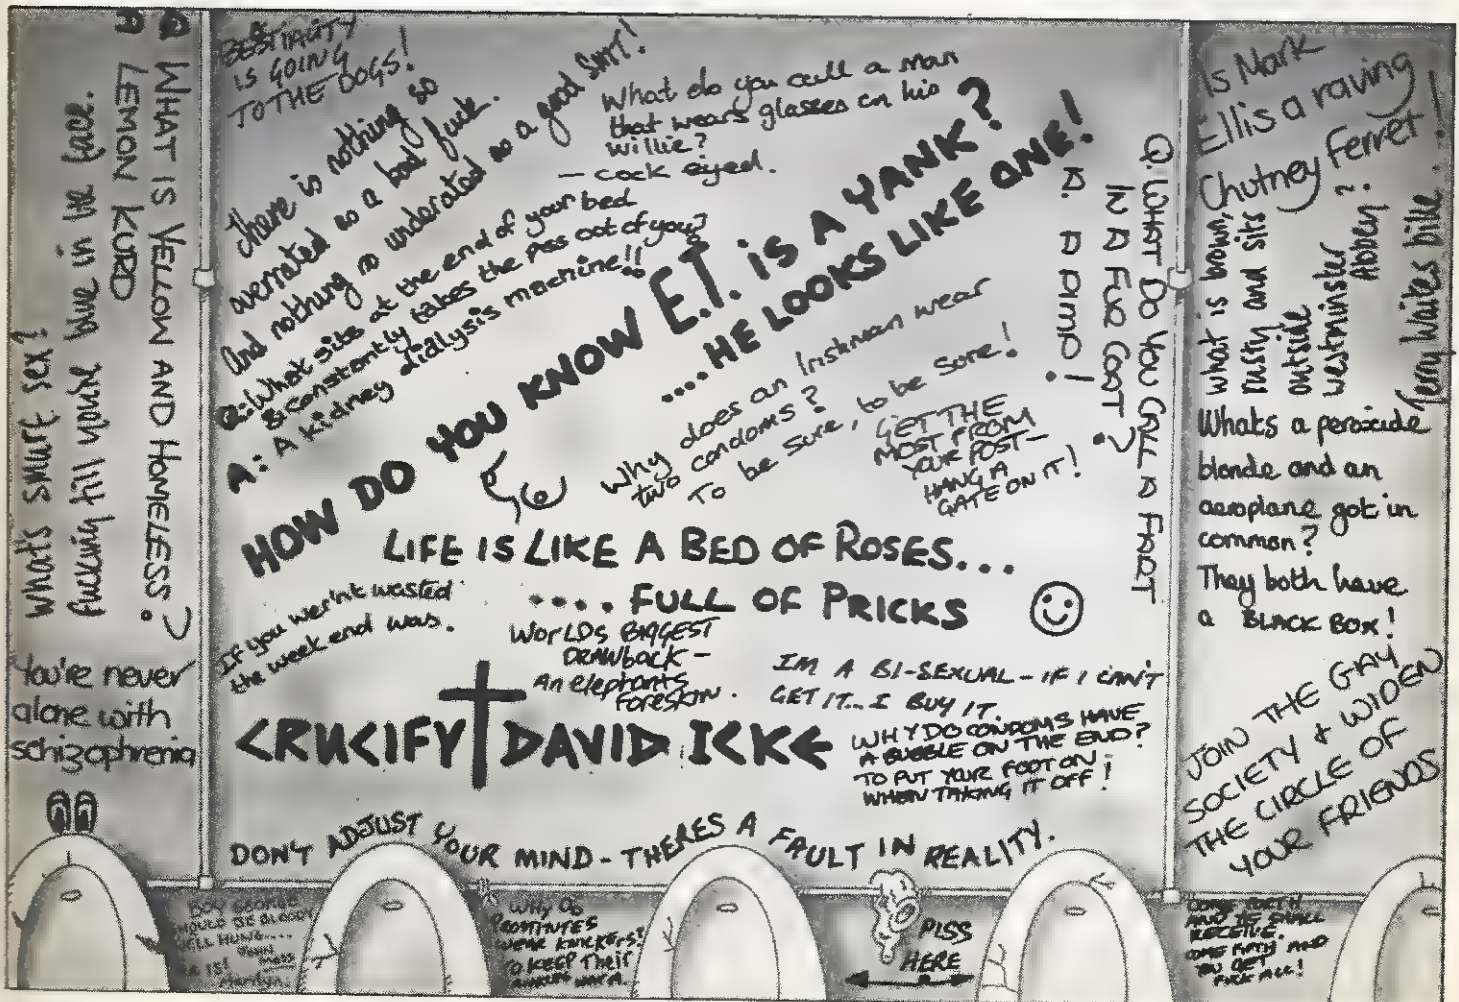 Q WHAT IS YELLOW AND HOMELESS?
A LEMON KURD
What's smurf sex?
fucking till you're blue in the face.
You're never
alone with
schizophrenia
BESTIALITY
IS GOING
TO THE DOGS!
There is nothing so
overrated as a bad fuck.
And nothing so underrated as a good SHIT!
Q: What sits at the end of your bed
& constantly takes the piss out of you?
A: A kidney dialysis machine!!
What do you call a man
that wears glasses on his
willie?
- cock eyed.
HOW DO YOU KNOW E.T. IS A YANK?
....HE LOOKS LIKE ONE!
Why does an Irishman wear
two condoms?
To be sure, to be sure!
GET THE
MOST FROM
YOUR POST-
HANG A
GATE ON IT!
Q. WHAT DO YOU CALL A FART
IN A FUR COAT?
A. A PIMP!
LIFE IS LIKE A BED OF ROSES...
.... FULL OF PRICKS
If you wer'nt wasted
the week end was.
WORLDS BIGGEST
DRAWBACK-
An elephants
Foreskin.
IM A BI-SEXUAL-IF I CAN'T
GET IT... I BUY IT.
CRUCIFY DAVID ICKE
WHY DO CONDOMS HAVE
A BUBBLE ON THE END?
TO PUT YOUR FOOT ON
WHEN TAKING IT OFF!
DON'T ADJUST YOUR MIND-THERES A FAULT IN REALITY.
Is Mark
Ellis a raving
Chutney Ferret!
what is brown,
rusty and sits
outside
westminster
Abbey?
Terry Waites bike
Whats a peroxide
blonde and an
aeroplane got in
common?
They both have
a BLACK BOX!
JOIN THE GAY
SOCIETY & WIDEN
THE CIRCLE OF
YOUR FRIENDS
BOY GEORGE
SHOULD BE BLOODY
WELL HUNG....
HE IS!
Marilyn.
WHY DO
PROSTITUTES
WEAR KNICKERS?
TO KEEP THEIR
PISS
HERE
COME FORTH
AND YE SHALL
RECEIVE.
COME FIFTH AND
YOU GET
FUCK ALL!